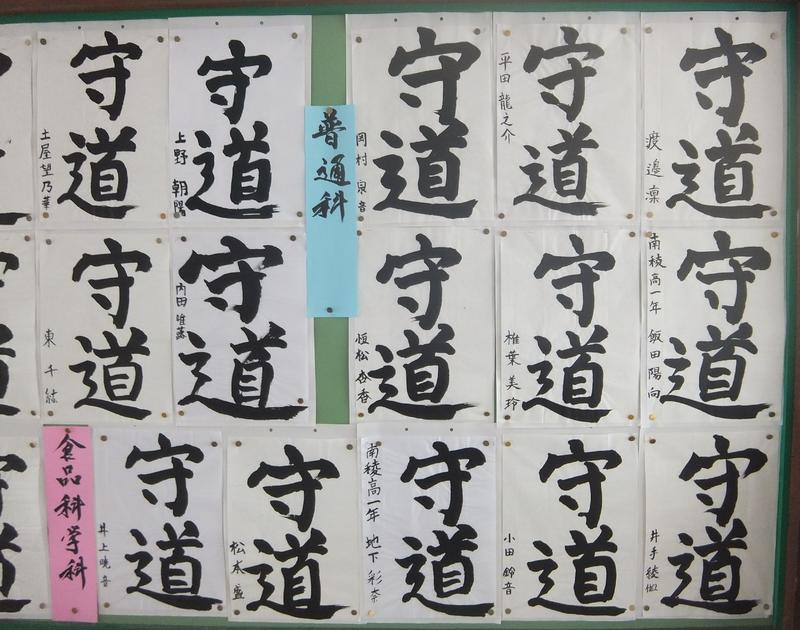 守道
渡邉凛
守道
平田 龍之介
守道
岡村 泉音
普通科
守道
上野 朝陽
守道
土屋望乃華
守道
南稜高一年 飯田陽向
守道
椎葉美玲
守道
恒松杏香
守道
内田
守道
東 千紘
守道
井手綾
守道
小田 鈴音
守道
南稜高一年 地下彩
守道
松本 盛
守道
井上暁音
食品科学科